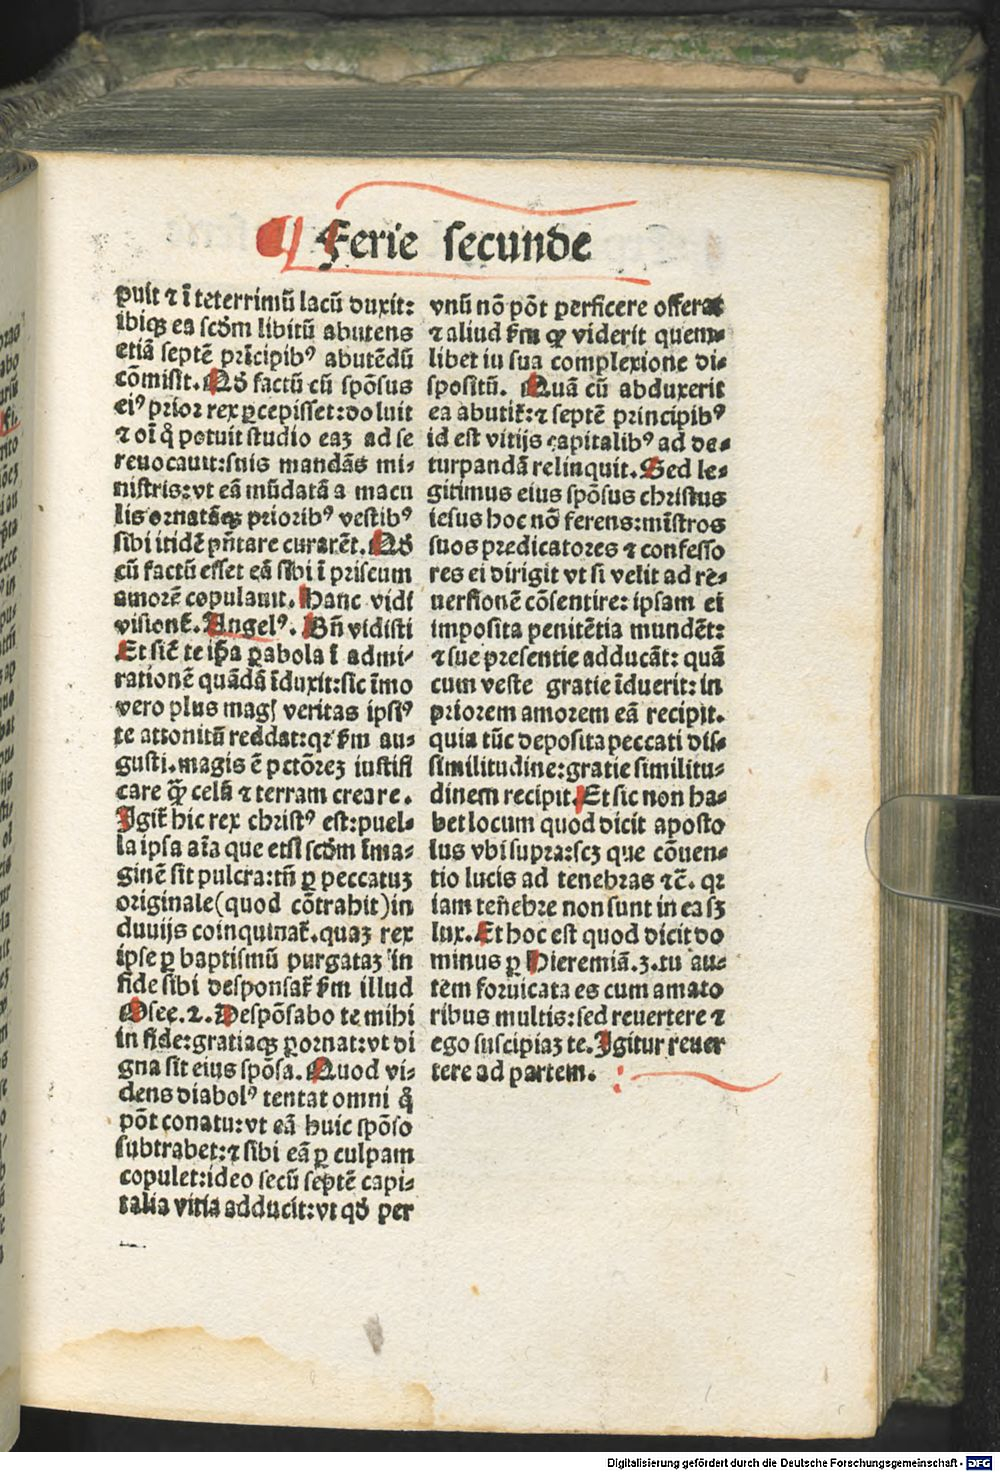 Ferie secunde
puit ⁊ ī teterrimū lacū duxit:
ibiqꝫ ea scḋm libitū abutens
etiā septē prīcipibꝰ abutēdū
cōmisit. Qḋ factū cū spōsus
eiꝰ prior rex ꝑcepisset: doluit
⁊ oī q̄ potuit studio eaꝫ ad se
reuocauit: suis mandās mi-
nistris: vt eā mūdatā a macu
lis ornatāqꝫ prioribꝰ vestibꝰ
sibi itidē p̄ñtare curarēt. Qḋ
cū factū esset eā sibi ī priscum
amorē copulauit. Hanc vidi
visionē. Angelꝰ. Bñ vidisti
Et sic̄ te ip̄a ꝑabola ī admi-
rationē quādā īduxit: sic īmo
vero plus magꝭ veritas ipsiꝰ
te attonitū reddat: qꝛ ẜm au-
gusti. magis ē pctōreꝫ iustifi
care qꝫ̄ celū ⁊ terram creare.
Igit̄ hic rex christꝰ est: puel-
la ipsa aīa que etsi scḋm īma-
ginē sit pulcra: tñ ꝑ peccatuꝫ
originale (quod cōtrahit) in
duuijs coinquinat̄. quaꝫ rex
ipse ꝑ baptismū purgataꝫ in
fide sibi desponsat̄ ẜm illud
Osee. 2. Despōsabo te mihi
in fide: gratiaqꝫ ꝑornat: vt di
gna sit eius spōsa. Quod vi-
dens diabolꝰ tentat omni q̄
pōt conatu: vt eā huic spōso
subtrahet: ⁊ sibi eā ꝑ culpam
copulet: ideo secū septē capi-
talia vitia adducit: vt qḋ per
vnū nō pōt perficere offerat
⁊ aliud ẜm qḋ viderit quem-
libet in sua complexione di-
spositū. Quā cū abduxerit
ea abutit̄: ⁊ septē principibꝰ
id est vitijs capitalibꝰ ad de-
turpandā relinquit. Sed le-
gitimus eius spōsus christus
iesus hoc nō ferens: mīstros
suos predicatores ⁊ confesso
res ei dirigit vt si velit ad re-
uersionē cōsentire: ipsam ei
imposita penitētia mundēt:
⁊ sue presentie adducāt: quā
cum veste gratie īduerit: in
priorem amorem eā recipit.
quia tūc deposita peccati dis-
similitudine: gratie similitu-
dinem recipit. Et sic non ha-
bet locum quod dicit aposto
lus vbi supra: scꝫ que cōuen-
tio lucis ad tenebras ⁊c̄. qꝛ
iam teñebre non sunt in ea sꝫ
lux. Et hoc est quod dicit do
minus ꝑ Hieremiā. 3. tu au-
tem fornicata es cum amato
ribus multis: sed reuertere ⁊
ego suscipiaꝫ te. Igitur reuer
tere ad partem.
Digitalisierung gefördert durch die Deutsche Forschungsgemeinschaft - DFG